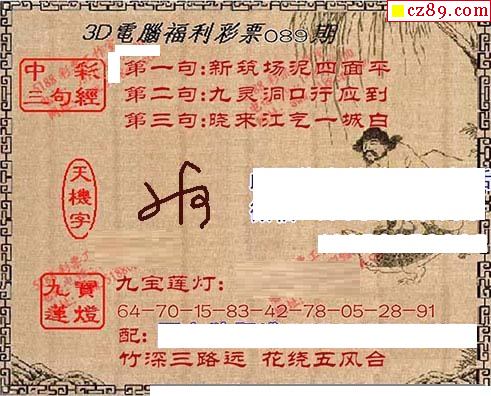 cz89.com
3D電腦福利彩票089期
中彩
三句經
第一句:新筑场泥四面平
第二句:九灵洞口行应到
第三句:晓来江气一城白
天機字
九寶
蓮燈
九宝莲灯:
64-70-15-83-42-78-05-28-91
配:
竹深三路远 花绕五风台